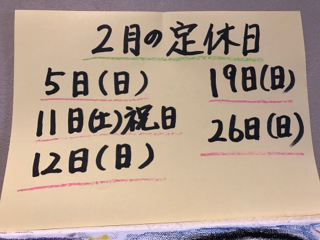 2月の定休日
5日(日)
11日(土)祝日
12日(日)
19日(日)
26日(日)